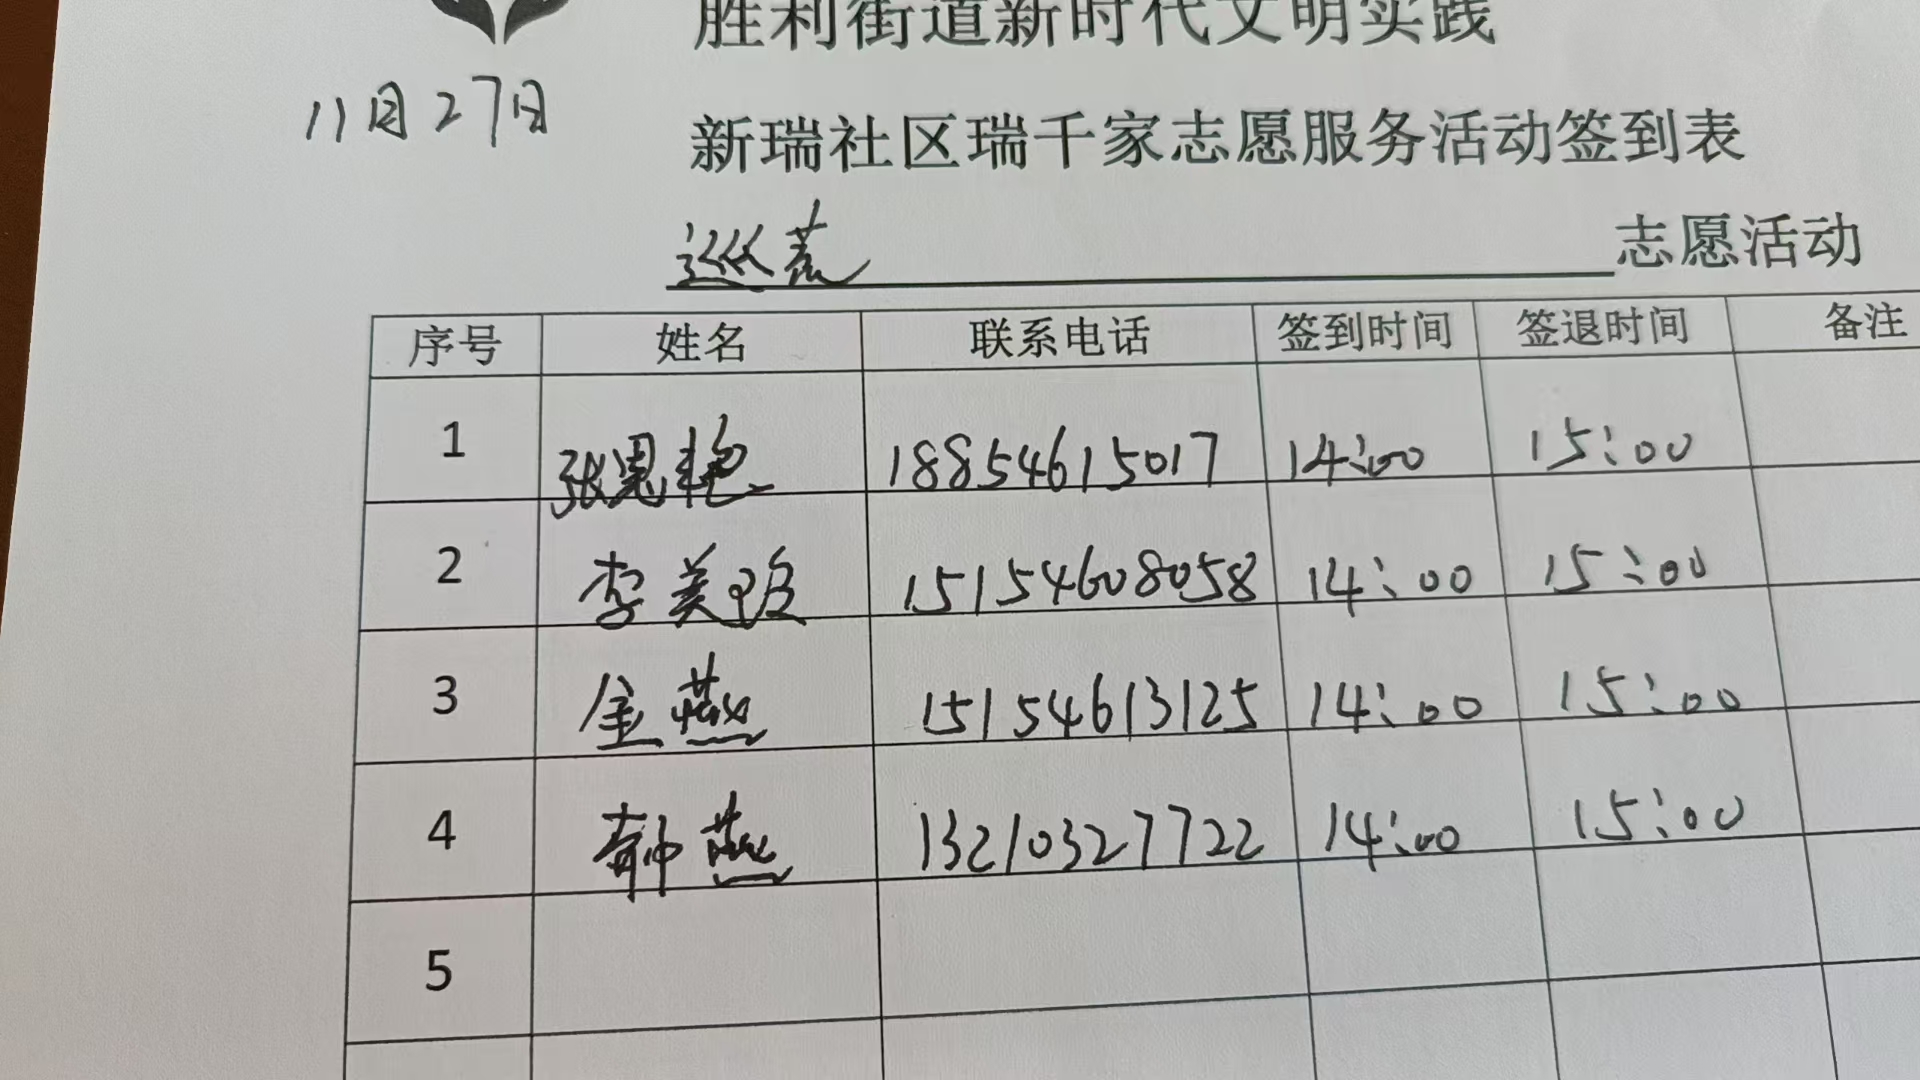 胜利街道新时代文明实践
11月27日
新瑞社区瑞千家志愿服务活动签到表
巡 志愿活动
序号 姓名 联系电话 签到时间 签退时间 备注
1 张恩艳 18854615017 14:00 15:00
2 李美玲 15154608058 14:00 15:00
3 金燕 15154613125 14:00 15:00
4 燕 13210327722 14:00 15:00
5